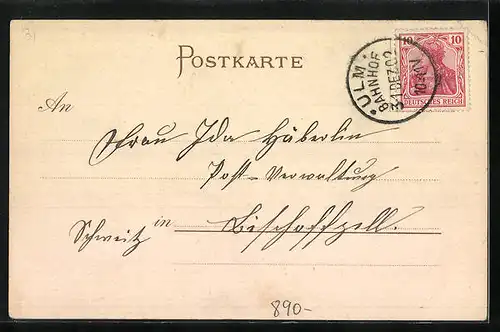 POSTKARTE
10 10
DEUTSCHES REICH
ULM
BAHNHOF
31 DEZ 02
10-11 V
An
Frau Ida Häberlin
Post-Verwaltung
Schweitz in Bischoffzell.
890-